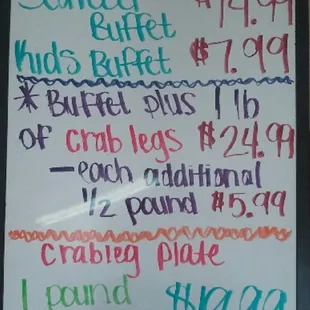 Buffet $14.99
Kids Buffet $7.99
* Buffet plus 1 lb
of crab legs $24.99
—each additional
1/2 pound $5.99
Crableg Plate
1 pound $19.99